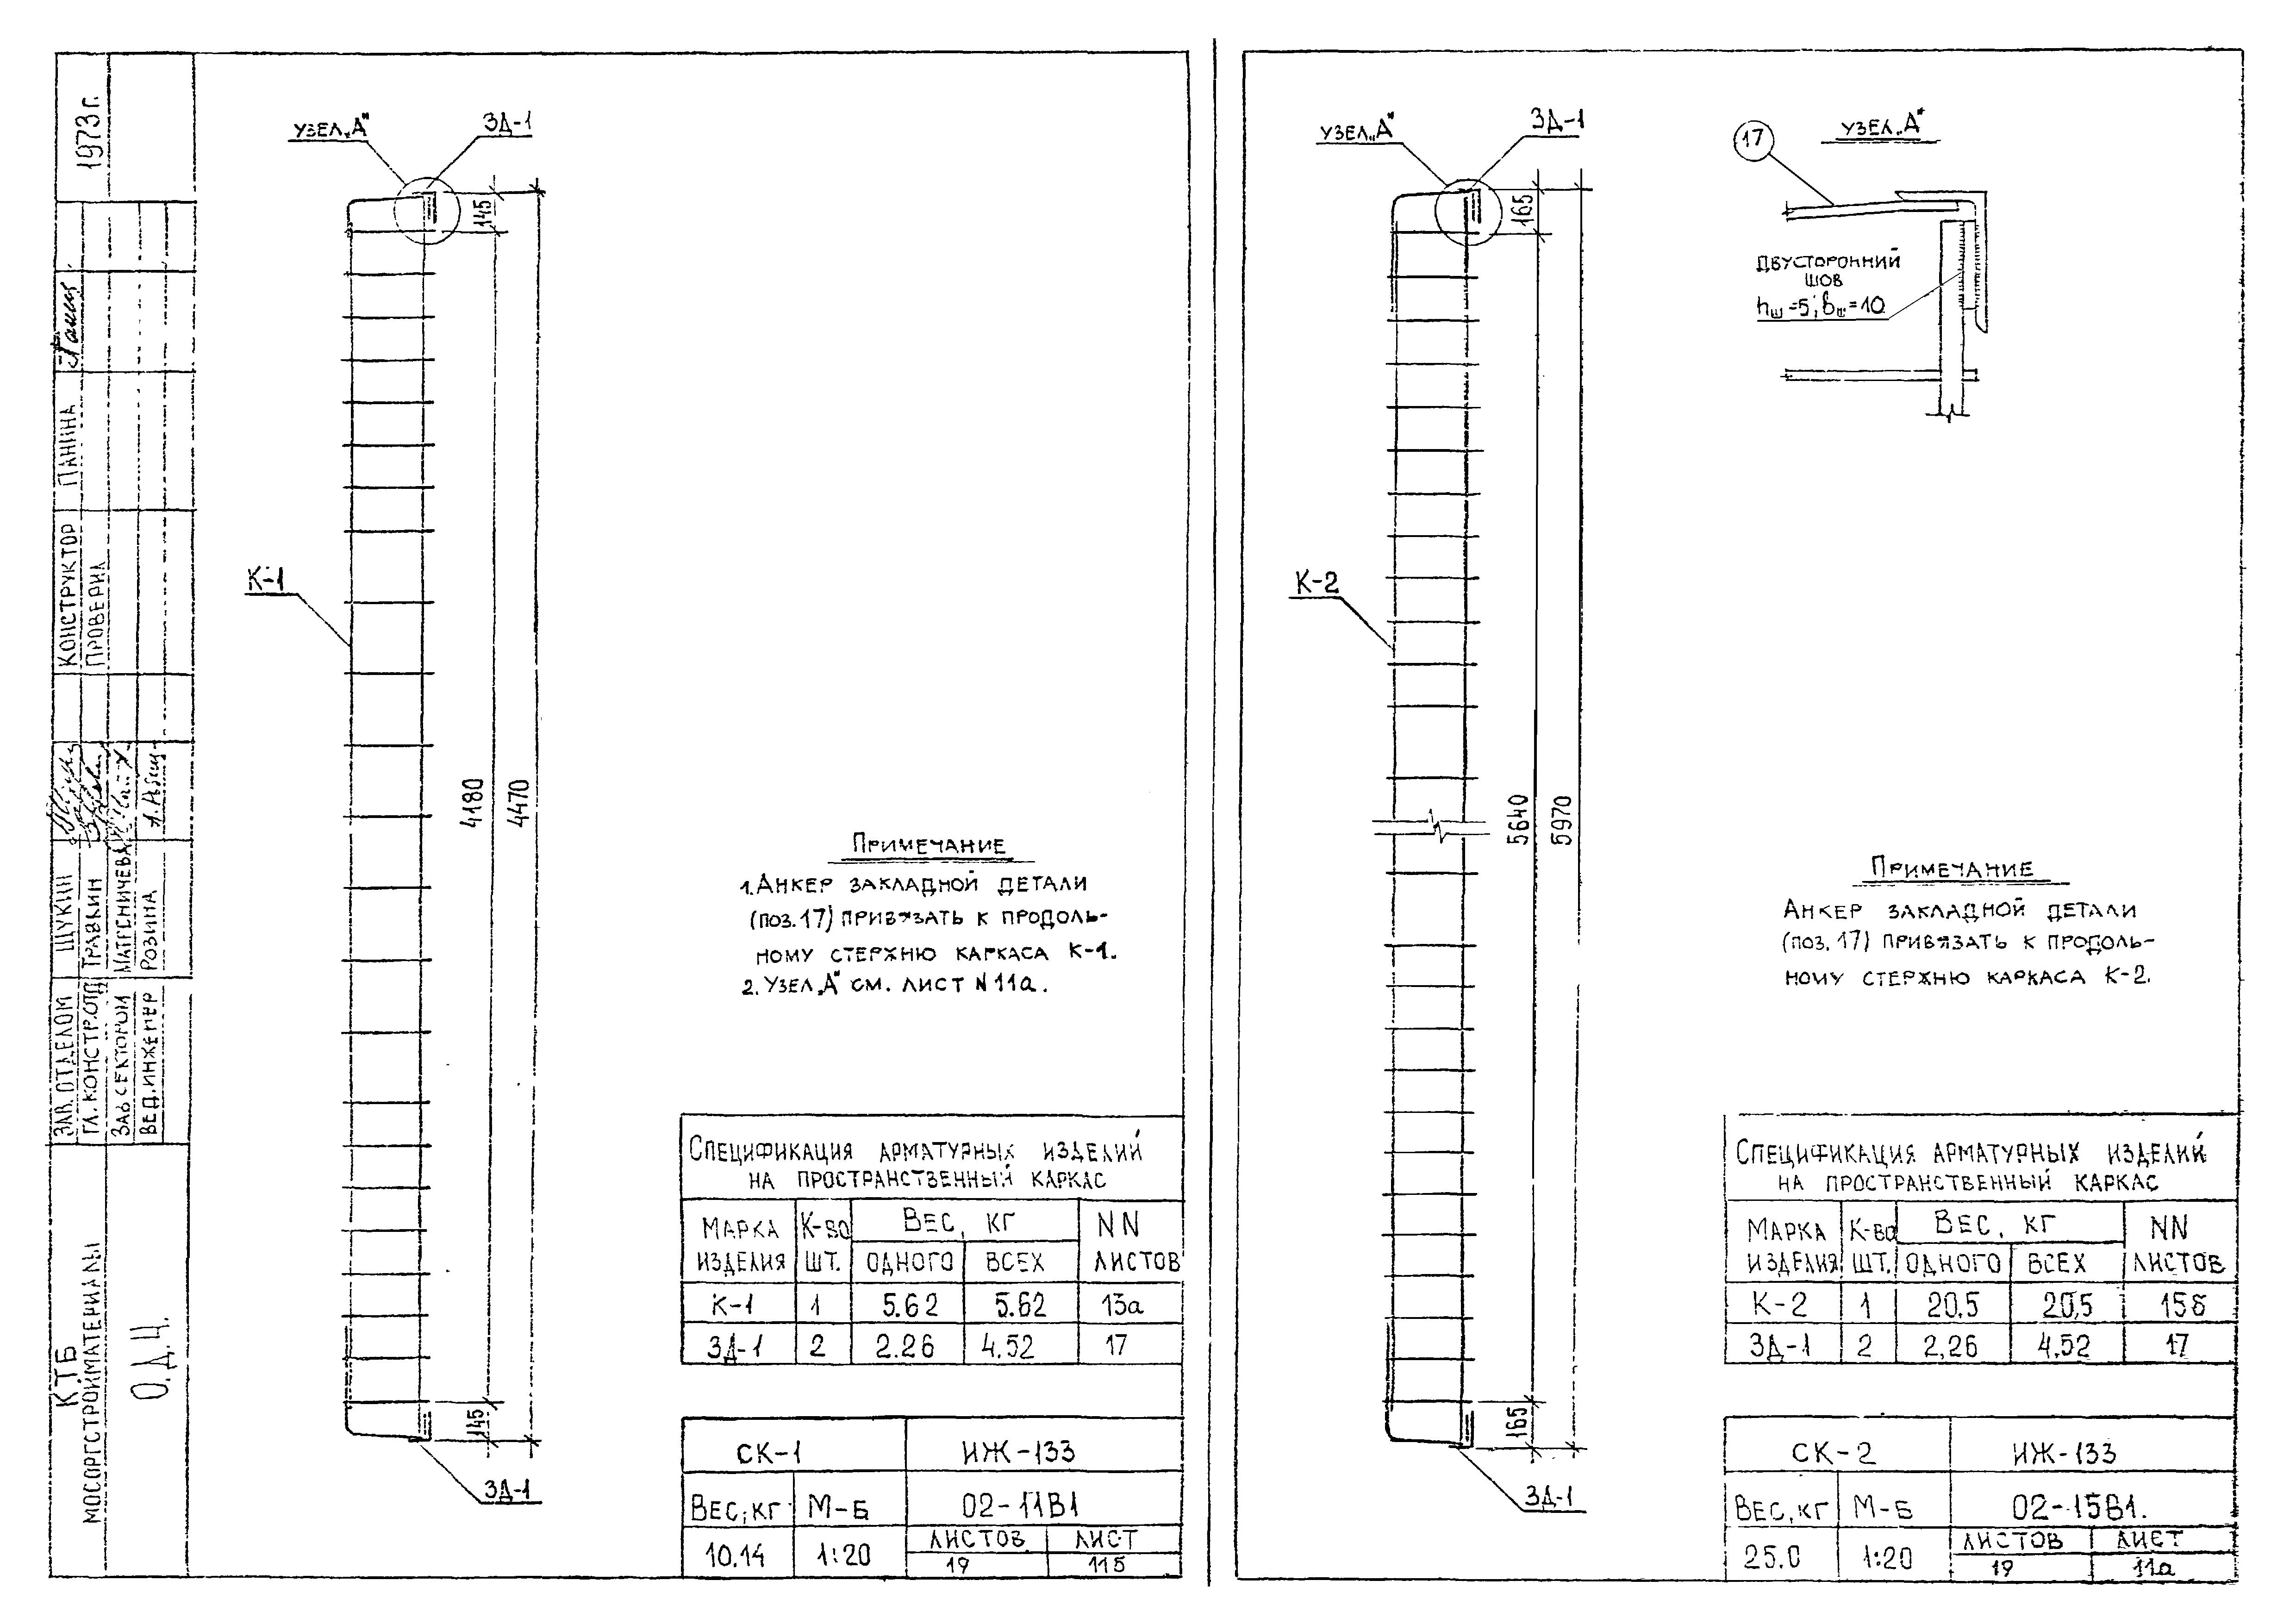 1973 г.
КОНСТРУКТОР ПАНИНА
ПРОВЕРИЛ
ЗАВ. ОТДЕЛОМ ЩУКИН
ГЛ. КОНСТР. ОТД ТРАВКИН
ЗАВ СЕКТОРОМ МАТРЕНИЧЕВА
ВЕД. ИНЖЕНЕР РОЗИНА
КТБ
МОСОРГСТРОЙМАТЕРИАЛЫ
О.Д.Ц.
УЗЕЛ „А"
ЗД-1
145
К-1
4180
4470
145
ЗД-1
ПРИМЕЧАНИЕ
1. АНКЕР ЗАКЛАДНОЙ ДЕТАЛИ
(ПОЗ. 17) ПРИВЯЗАТЬ К ПРОДОЛЬ-
НОМУ СТЕРЖНЮ КАРКАСА К-1.
2. УЗЕЛ „А" СМ. ЛИСТ N 11а.
СПЕЦИФИКАЦИЯ АРМАТУРНЫХ ИЗДЕЛИЙ
НА ПРОСТРАНСТВЕННЫЙ КАРКАС
МАРКА К-ВО ВЕС, КГ NN
ИЗДЕЛИЯ ШТ. ОДНОГО ВСЕХ ЛИСТОВ
К-1 1 5.62 5.62 13а
ЗД-1 2 2.26 4.52 17
СК-1 ИЖ-133
ВЕС, КГ М-Б 02-11В1
10.14 1:20 ЛИСТОВ ЛИСТ
19 11б
УЗЕЛ „А"
ЗД-1
165
К-2
5640
5970
165
ЗД-1
УЗЕЛ „А"
17
ДВУСТОРОННИЙ
ШОВ
hш=5; bш=10
ПРИМЕЧАНИЕ
АНКЕР ЗАКЛАДНОЙ ДЕТАЛИ
(ПОЗ. 17) ПРИВЯЗАТЬ К ПРОДОЛЬ-
НОМУ СТЕРЖНЮ КАРКАСА К-2.
СПЕЦИФИКАЦИЯ АРМАТУРНЫХ ИЗДЕЛИЙ
НА ПРОСТРАНСТВЕННЫЙ КАРКАС
МАРКА К-ВО ВЕС, КГ NN
ИЗДЕЛИЯ ШТ. ОДНОГО ВСЕХ ЛИСТОВ
К-2 1 20,5 20,5 15б
ЗД-1 2 2,26 4,52 17
СК-2 ИЖ-133
ВЕС, КГ М-Б 02-15В1.
25.0 1:20 ЛИСТОВ ЛИСТ
19 11а